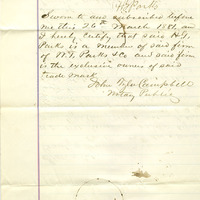 H.T. Parks
Sworn to and subscribed before
me this 26th March 1881 and
I hereby certify that said H.T.
Parks is a member of said firm
of H.T. Parks & Co and said firm
is the exclusive owner of said
trade mark
John Campbell
Notary Public